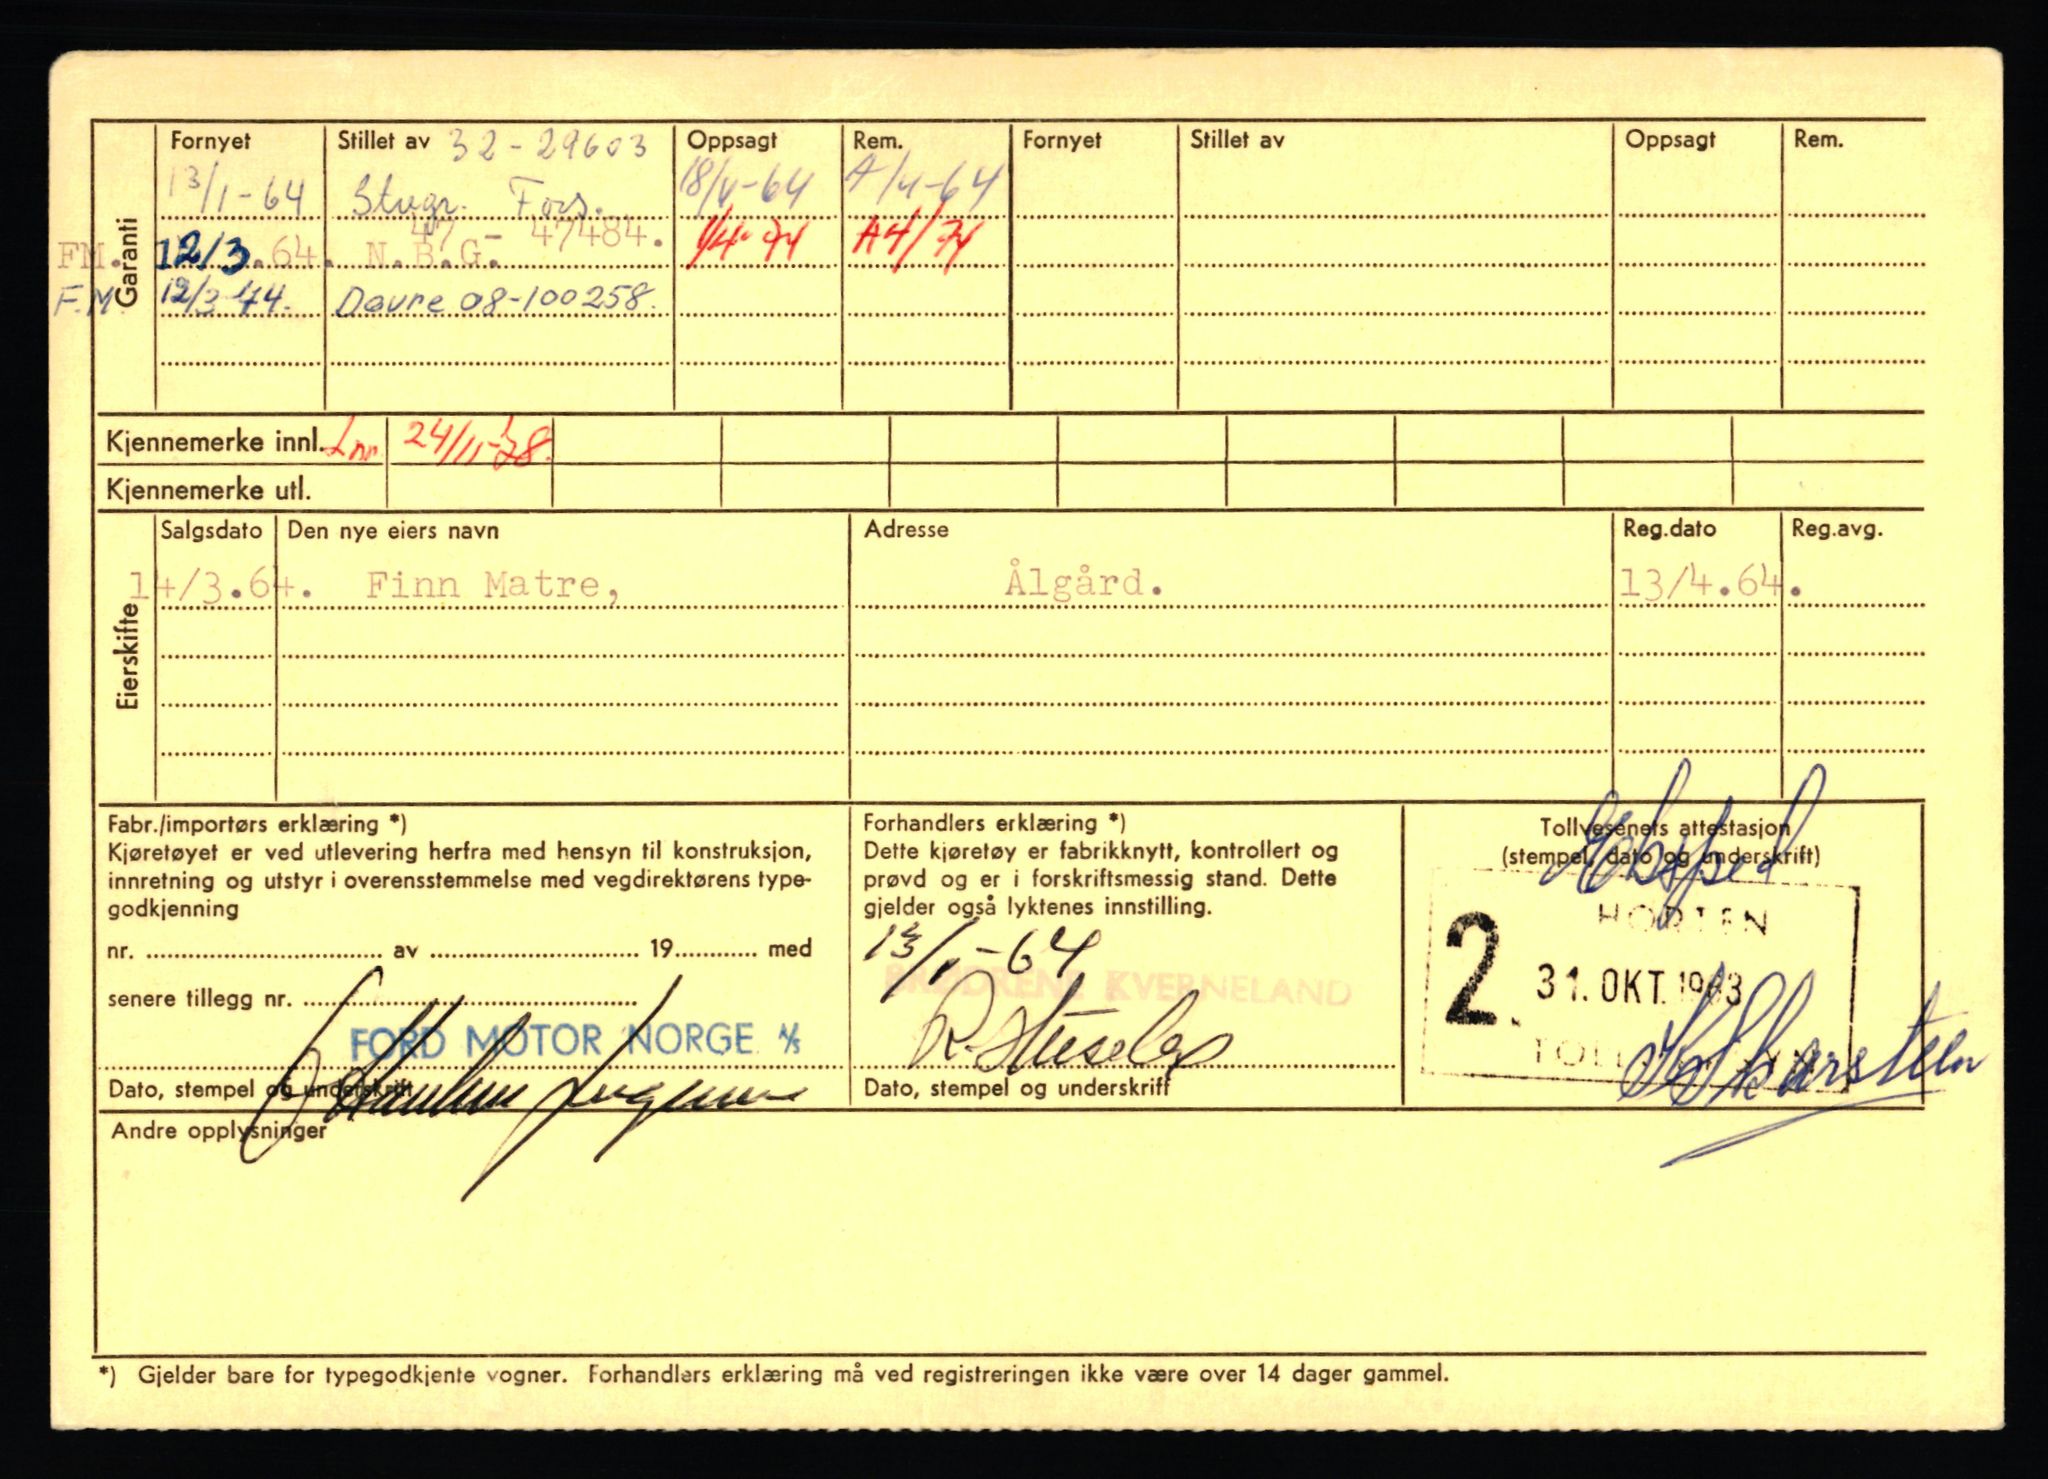 Garanti
Fornyet Stillet av 32-29603 Oppsagt Rem. Fornyet Stillet av Oppsagt Rem.
13/1-64 Stvgr. Fors. 18/4-64 A/4-64
47-47484.
FM. 12/3.64. N.B.G. 1/4-74 A4/74
F.M. 12/3 74. Dovre 08-100258.
Kjennemerke innl. Inn 24/11-78.
Kjennemerke utl.
Eierskifte
Salgsdato Den nye eiers navn Adresse Reg.dato Reg.avg.
14/3.64. Finn Matre, Ålgård. 13/4.64.
Fabr./importørs erklæring *)
Kjøretøyet er ved utlevering herfra med hensyn til konstruksjon,
innretning og utstyr i overensstemmelse med vegdirektørens type-
godkjenning
nr. av 19 med
senere tillegg nr.
FORD MOTOR NORGE A/S
Dato, stempel og underskrift
Forhandlers erklæring *)
Dette kjøretøy er fabrikknytt, kontrollert og
prøvd og er i forskriftsmessig stand. Dette
gjelder også lyktenes innstilling.
13/1-64
BRØDRENE KVERNELAND
Dato, stempel og underskriff
Tollvesenets attestasjon
(stempel, dato og underskrift)
Eksped
HORTEN
2. 31. OKT. 1963
Skarsteen
Andre opplysninger
*) Gjelder bare for typegodkjente vogner. Forhandlers erklæring må ved registreringen ikke være over 14 dager gammel.